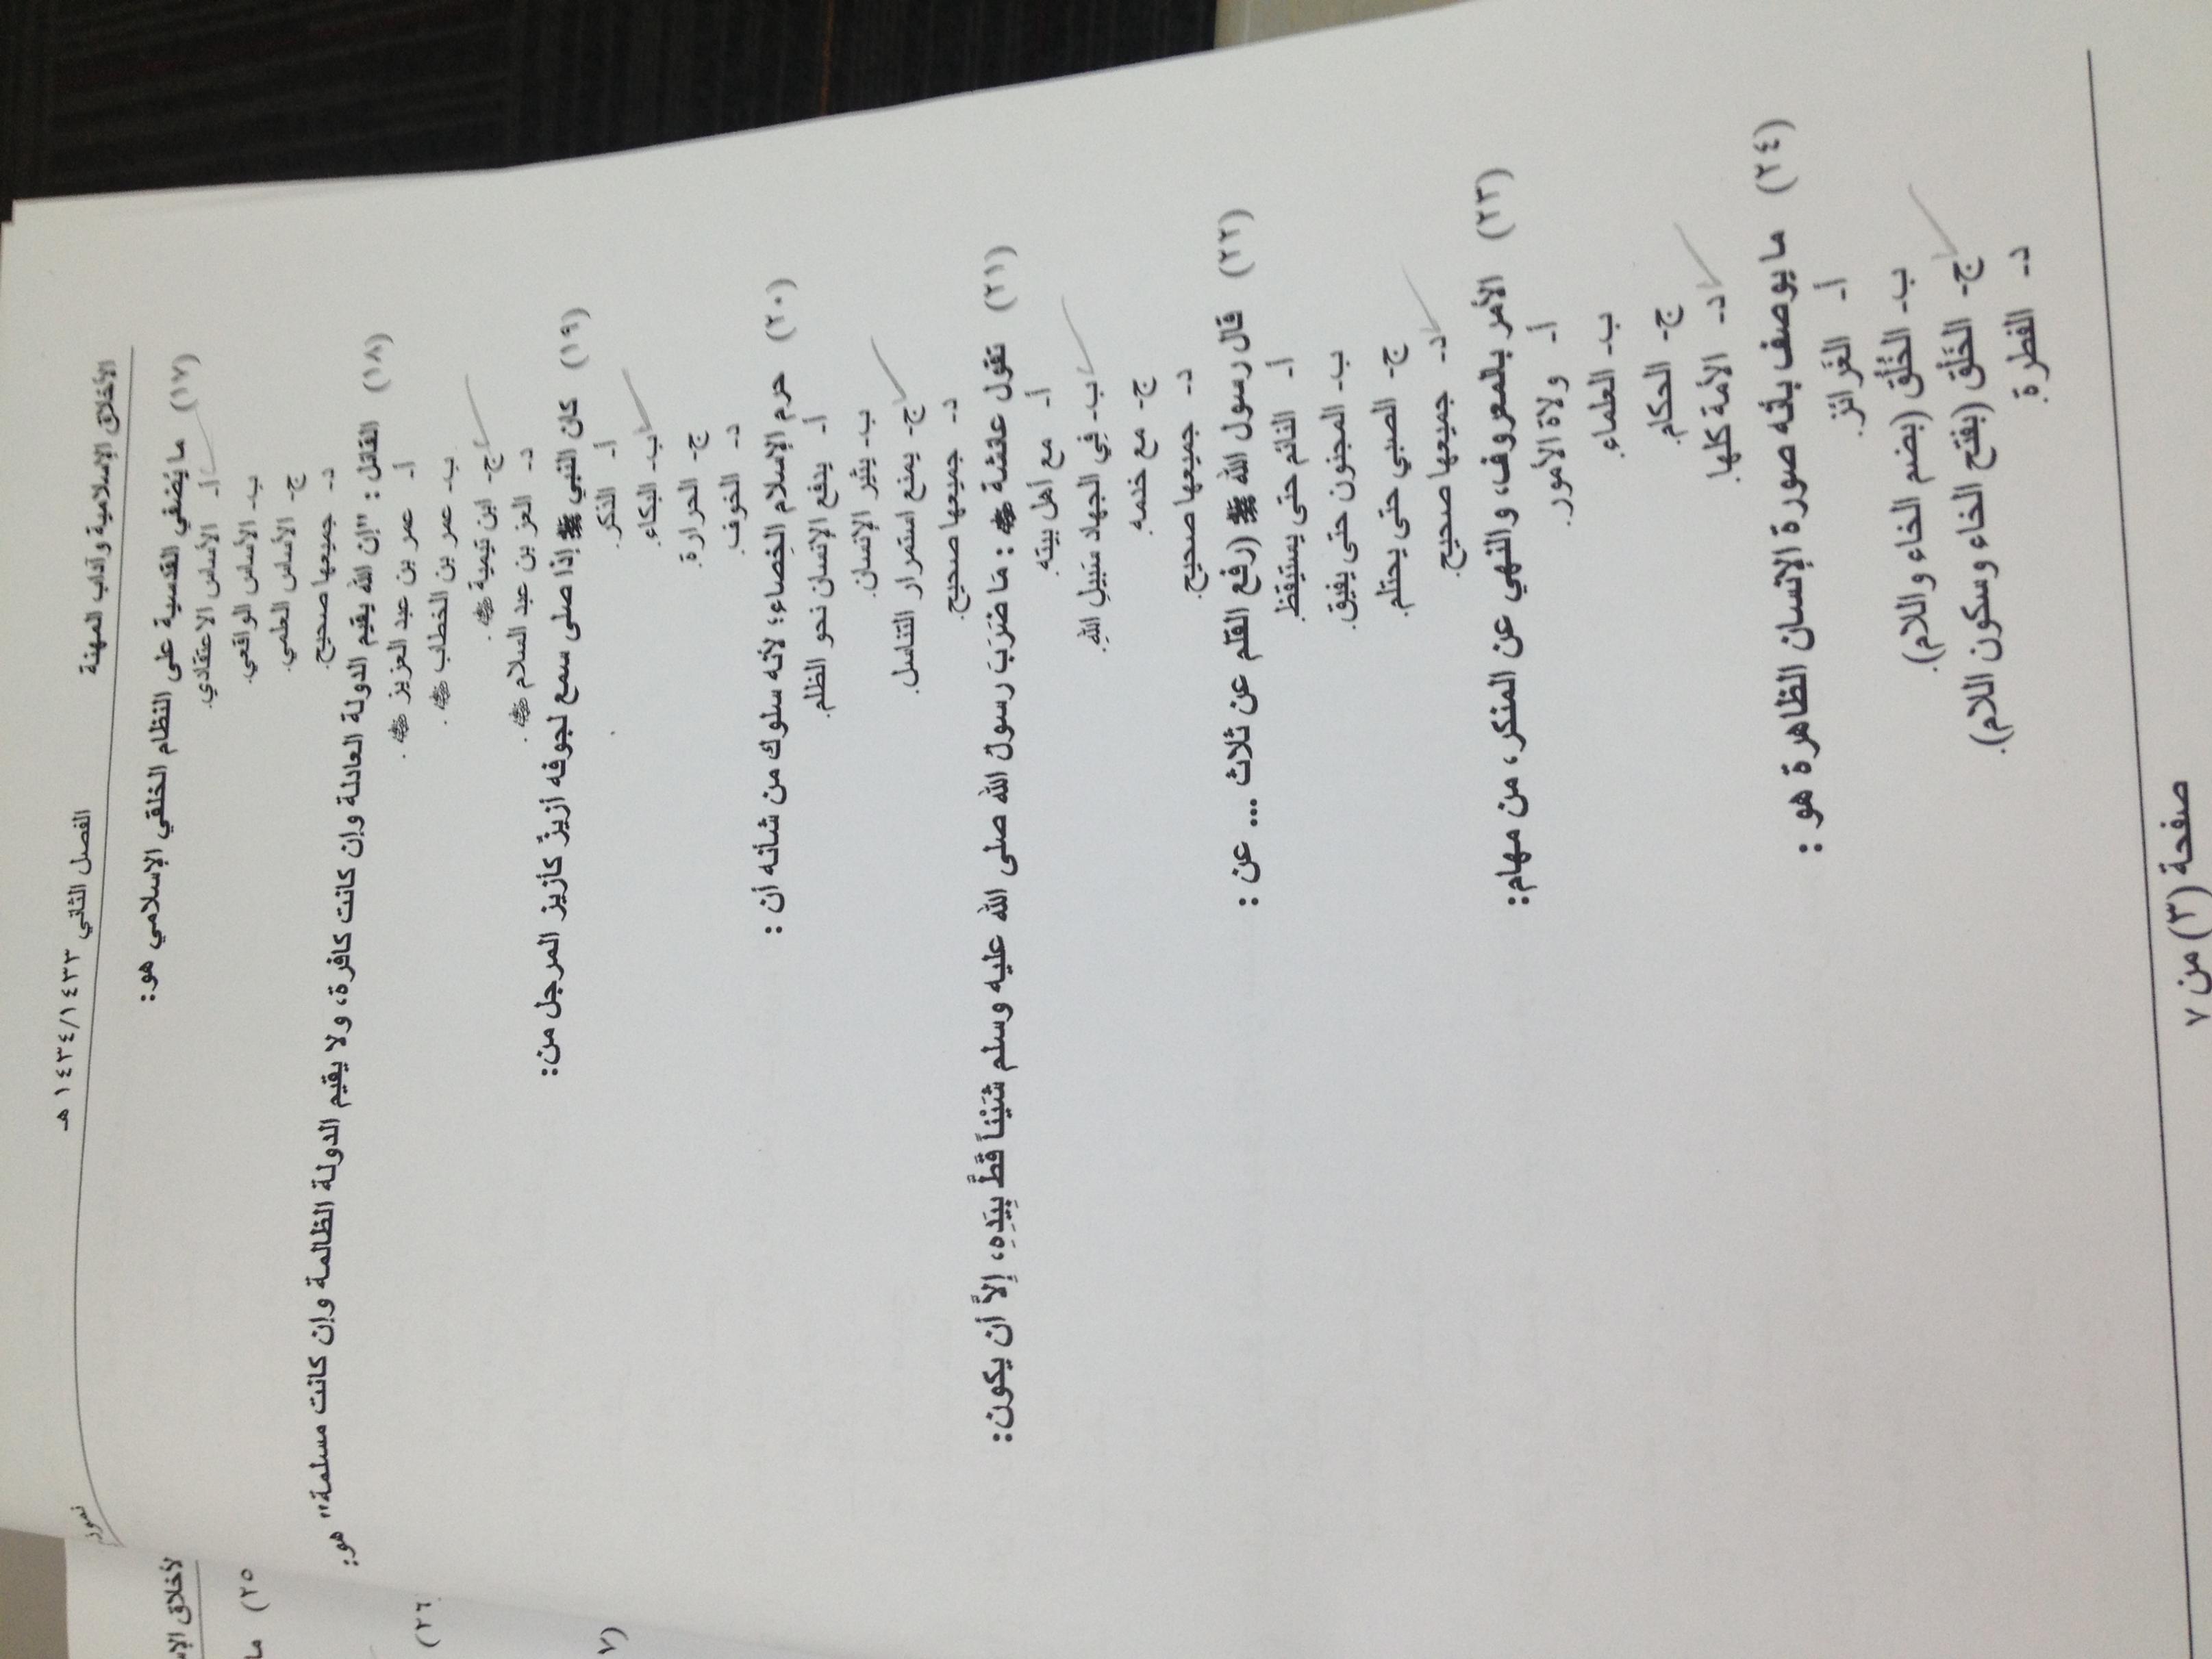 الأخلاق الإسلامية وآداب المهنة
الفصل الثاني ١٤٣٣/١٤٣٤ هـ
١٧) ما يُضفي القدسية على النظام الخلقي الإسلامي هو:
أ- الأساس الاعتقادي.
ب- الأساس الواقعي.
ج- الأساس العلمي.
د- جميعها صحيح.
١٨) القائل : "إن الله يقيم الدولة العادلة وإن كانت كافرة، ولا يقيم الدولة الظالمة وإن كانت مسلمة" هو:
أ- عمر بن عبد العزيز ﷺ .
ب- عمر بن الخطاب ﷺ .
ج- ابن تيمية ﷺ .
د- العز بن عبد السلام ﷺ .
١٩) كان النبي ﷺ إذا صلى سمع لجوفه أزيزٌ كأزيز المرجل من:
أ- الذكر.
ب- البكاء.
ج- الحرارة.
د- الخوف.
٢٠) حرم الإسلام الخِصاء؛ لأنه سلوك من شأنه أن :
أ- يدفع الإنسان نحو الظلم.
ب- يثير الإنسان.
ج- يمنع استمرار التناسل.
د- جميعها صحيح.
٢١) تقول عائشة : مَا ضَرَبَ رسول الله صلى الله عليه وسلم شَيْئاً قَطُّ بِيَدِهِ، إِلاَّ أن يكون:
أ- مع أهل بيته.
ب- فِي الجهاد سَبِيلِ اللهِ.
ج- مع خدمه.
د- جميعها صحيح.
٢٢) قال رسول الله ﷺ (رفع القلم عن ثلاث ... عن :
أ- النائم حتى يستيقظ.
ب- المجنون حتى يفيق.
ج- الصبي حتى يحتلم.
د- جميعها صحيح.
٢٣) الأمر بالمعروف، والنهي عن المنكر، من مهام:
أ- ولاة الأمور.
ب- العلماء.
ج- الحكام.
د- الأمة كلها.
٢٤) ما يوصف بأنه صورة الإنسان الظاهرة هو :
أ- الغَرائز.
ب- الخُلُق (بضم الخاء واللام).
ج- الخَلْق (بفتح الخاء وسكون اللام).
د- الفطرة.
صفحة (٣) من ٧
لأخلاق الإس
٢٥) ما
٢٦)
٧)